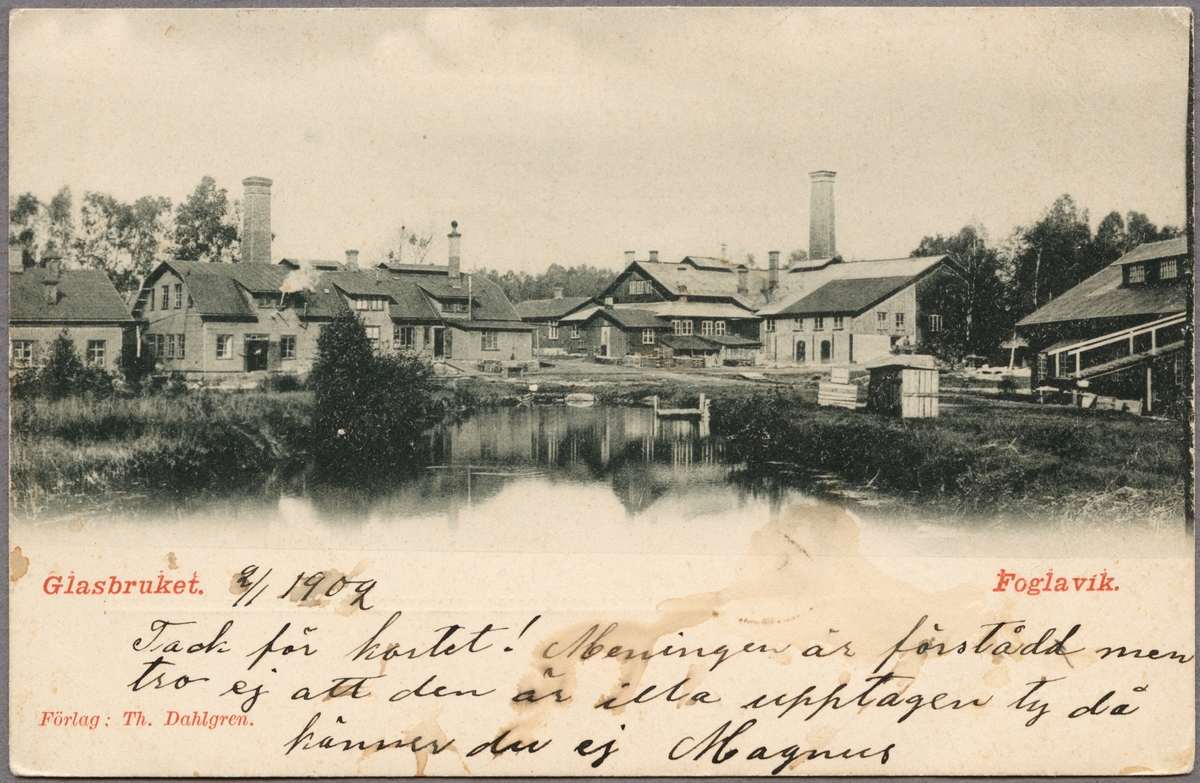 Glasbruket. 2/1 1902 Foglavik.
Tack för kortet! Meningen är förstådd men
tro ej att den är illa upptagen ty då
Förlag: Th. Dahlgren.
känner du ej Magnus